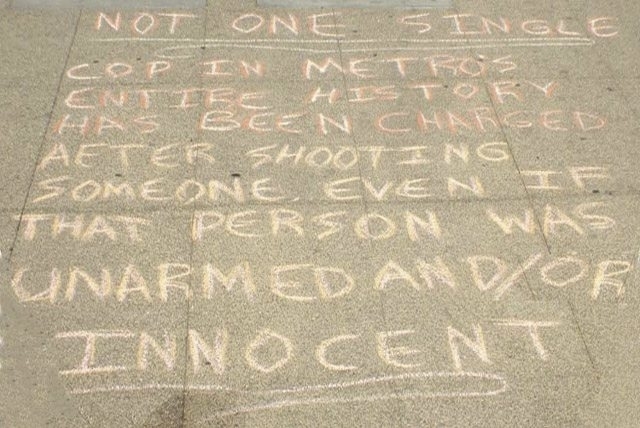 NOT ONE SINGLE
COP IN METRO'S
ENTIRE HISTORY
HAS BEEN CHARGED
AFTER SHOOTING
SOMEONE, EVEN IF
THAT PERSON WAS
UNARMED AND/OR
INNOCENT